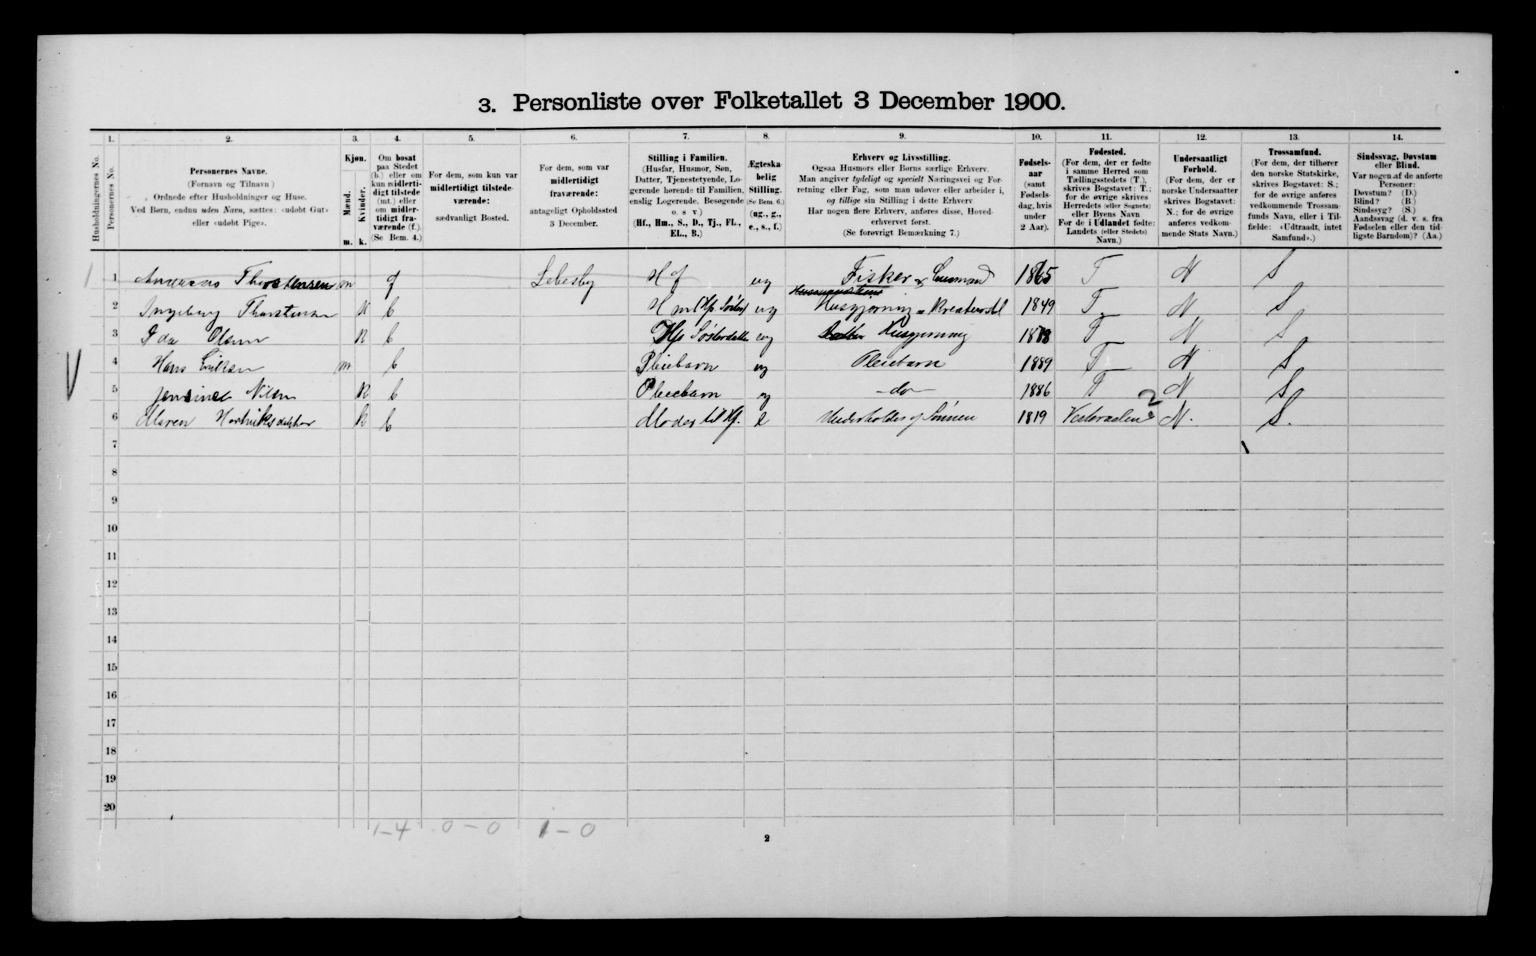 3. Personliste over Folketallet 3 December 1900.
1. 2. 3. 4. 5. 6. 7. 8. 9. 10. 11. 12. 13. 14.
Husholdningernes No.
Personernes No.
Personernes Navne.
(Fornavn og Tilnavn)
Ordnede efter Husholdninger og Huse.
Ved Børn, endnu uden Navn, sættes: «udøbt Gut»
eller «udøbt Pige».
Kjøn.
Mænd.
Kvinder.
m. k.
Om bosat
paa Stedet
(b.) eller om
kun midlerti-
digt tilstede
(mt.) eller
om midler-
tidigt fra-
værende (f.).
(Se Bem. 4.)
For dem, som kun var
midlertidigt tilstede-
værende:
sædvanligt Bosted.
For dem, som var
midlertidigt
fraværende:
antageligt Opholdssted
3 December.
Stilling i Familien.
(Husfar, Husmor, Søn,
Datter, Tjenestetyende, Lo-
gerende hørende til Familien,
enslig Logerende, Besøgende
o. s. v.)
(Hf., Hm., S., D., Tj., FL.,
EL., B.)
Ægteska-
belig
Stilling.
(Se Bem. 6.)
(ug., g.,
e., s., f.)
Erhverv og Livsstilling.
Ogsaa Husmors eller Børns særlige Erhverv.
Man angiver tydeligt og specielt Næringsvei og For-
retning eller Fag, som man udøver eller arbeider i,
og tillige sin Stilling i dette Erhverv
Har nogen flere Erhverv, anføres disse, Hoved-
erhvervet først.
(Se forøvrigt Bemærkning 7.)
Fødsels-
aar
(samt
Fødsels-
dag, hvis
under
2 Aar).
Fødested.
(For dem, der er fødte
i samme Herred som
Tællingsstedets (T.),
skrives Bogstavet: T.;
for de øvrige skrives
Herredets (eller Sognets)
eller Byens Navn
For de i Udlandet fødte:
Landets (eller Stedets)
Navn.)
Undersaatligt
Forhold.
(For dem, der er
norske Undersaatter
skrives Bogstavet:
N.; for de øvrige
anføres vedkom-
mende Stats Navn.)
Trossamfund.
(For dem, der tilhører
den norske Statskirke,
skrives Bogstavet: S.;
for de øvrige anføres
vedkommende Trossam-
funds Navn, eller i Til-
fælde: «Udtraadt, intet
Samfund».)
Sindssvag, Døvstum
eller Blind.
Var nogen af de anførte
Personer:
Døvstum? (D.)
Blind? (B.)
Sindssyg? (S.)
Aandssvag (d. v. s. fra
Fødselen eller den tid-
ligste Barndom)? (Aa.)
1 1 Thorstensen m f Lebesby Hf ug Fisker 1865 T N S
2 Ingeborg Thorstensen K b Hm (Hf. Søster) ug Husgjerning 1849 T N S
3 Ida Olsen K b Hfs Søsterdatter ug Husgjerning 1878 T N S
4 Hans m b Pleiebarn ug Pleiebarn 1889 T N S
5 Nilsen K b Pleiebarn ug do 1886 T N S
6 Maren K b Moder til Hf. e Underholdes af Sønnen 1819 Vesteraalen 2 N. S.
7
8
9
10
11
12
13
14
15
16
17
18
19
20
1-4 0-0 1-0
2